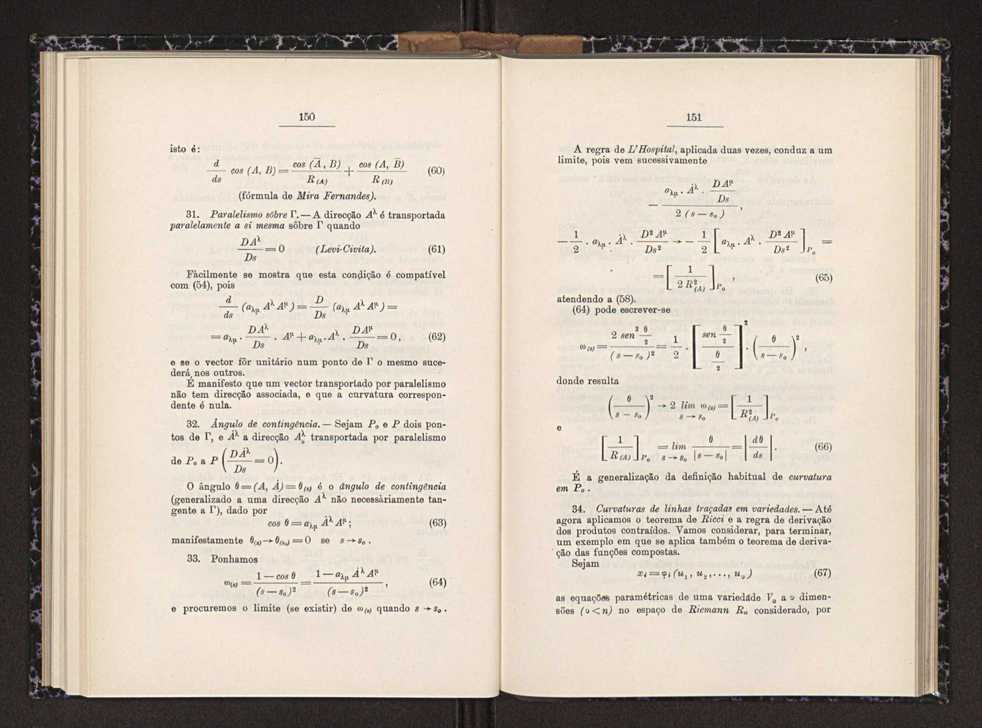 150
isto é:
d/ds cos (A, B) = cos (A̅, B)/R(A) + cos (A, B̅)/R(B) (60)
(fórmula de Mira Fernandes).
31. Paralelismo sôbre Γ. — A direcção Aλ é transportada
paralelamente a si mesma sôbre Γ quando
DAλ/Ds = 0 (Levi-Civita). (61)
Fàcilmente se mostra que esta condição é compatível
com (54), pois
d/ds (aλμ Aλ Aμ) = D/Ds (aλμ Aλ Aμ) =
= aλμ . DAλ/Ds . Aμ + aλμ . Aλ . DAμ/Ds = 0, (62)
e se o vector fôr unitário num ponto de Γ o mesmo suce-
derá nos outros.
É manifesto que um vector transportado por paralelismo
não tem direcção associada, e que a curvatura correspon-
dente é nula.
32. Ângulo de contingência. — Sejam Po e P dois pon-
tos de Γ, e Ȧλ a direcção Aλo transportada por paralelismo
de Po a P (DȦλ/Ds = 0).
O ângulo θ = (A, Ȧ) = θ(s) é o ângulo de contingência
(generalizado a uma direcção Aλ não necessàriamente tan-
gente a Γ), dado por
cos θ = aλμ Ȧλ Aμ; (63)
manifestamente θ(s) → θ(so) = 0 se s → so.
33. Ponhamos
ω(s) = 1 — cos θ/(s — so)² = 1 — aλμ Ȧλ Aμ/(s — so)², (64)
e procuremos o limite (se existir) de ω(s) quando s → so.
151
A regra de L'Hospital, aplicada duas vezes, conduz a um
limite, pois vem sucessivamente
— aλμ . Ȧλ . DAμ/Ds / 2 (s — so),
— 1/2 . aλμ . Ȧλ . D²Aμ/Ds² → — 1/2 [aλμ . Aλ . D²Aμ/Ds²]Po =
= [1/2 R²(A)]Po, (65)
atendendo a (58).
(64) pode escrever-se
ω(s) = 2 sen² θ/2 / (s — so)² = 1/2 [sen θ/2 / θ/2]² . (θ/s — so)²,
donde resulta
(θ/s — so)² → 2 lim s → so ω(s) = [1/R²(A)]Po
e
[1/R(A)]Po = lim s → so θ/|s — so| = |dθ/ds|. (66)
É a generalização da definição habitual de curvatura
em Po.
34. Curvaturas de linhas traçadas em variedades. — Até
agora aplicamos o teorema de Ricci e a regra de derivação
dos produtos contraídos. Vamos considerar, para terminar,
um exemplo em que se aplica também o teorema de deriva-
ção das funções compostas.
Sejam
xi = φi (u1, u2, . . ., uν) (67)
as equações paramétricas de uma variedade Vν a ν dimen-
sões (ν < n) no espaço de Riemann Rn considerado, por